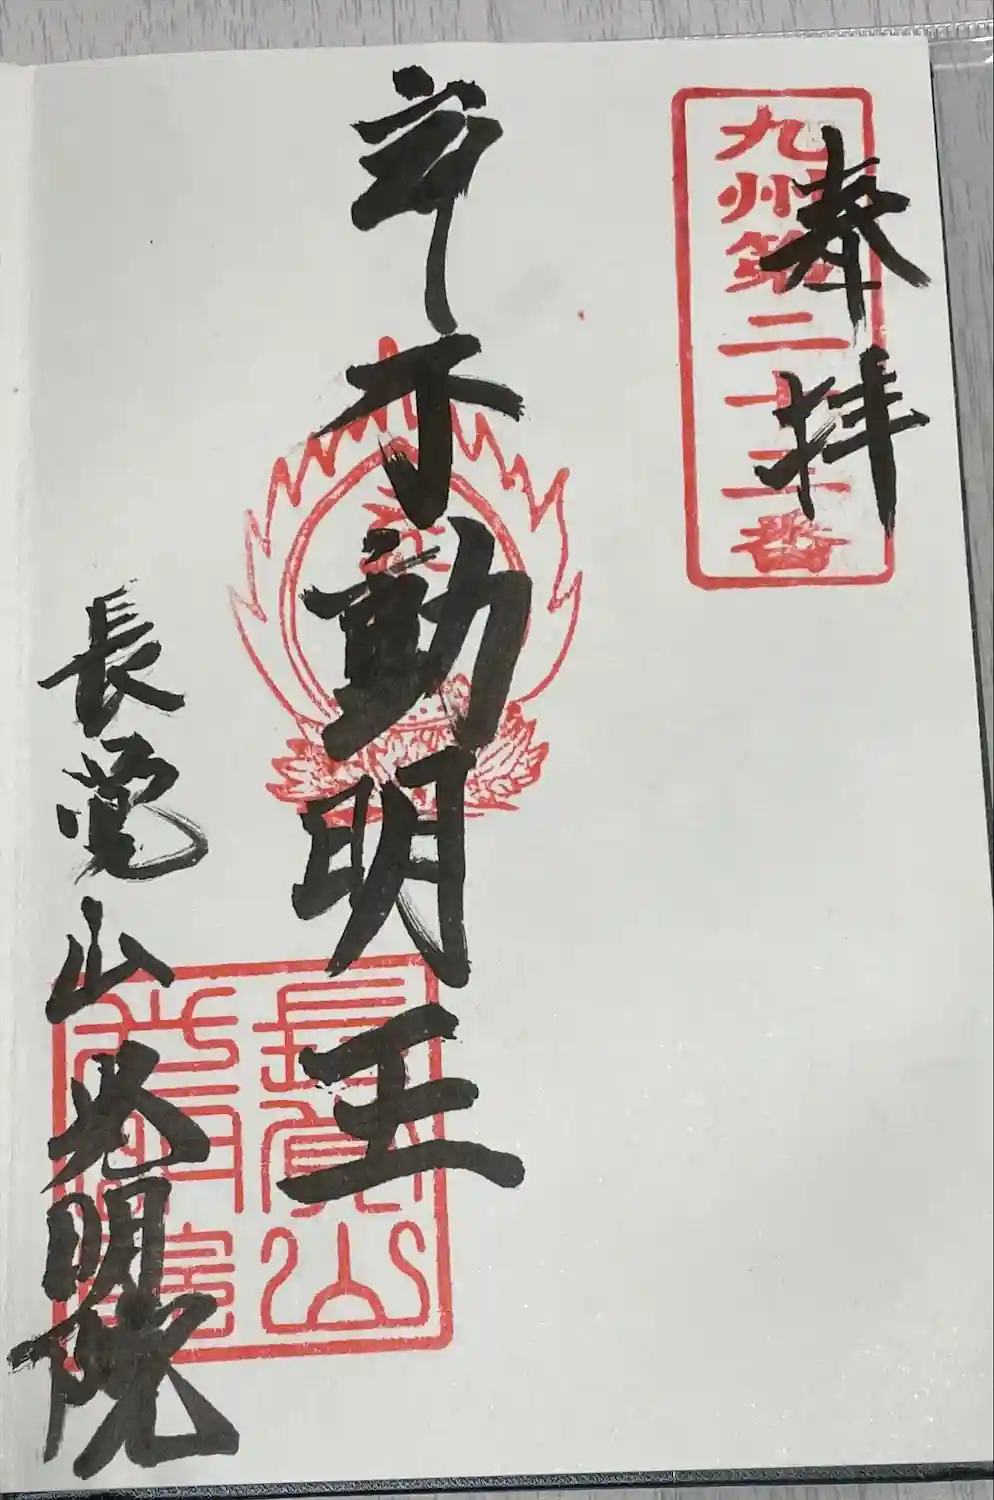 奉拝
九州第二十二番
不動明王
長覚山光明院
長覚山
光明院